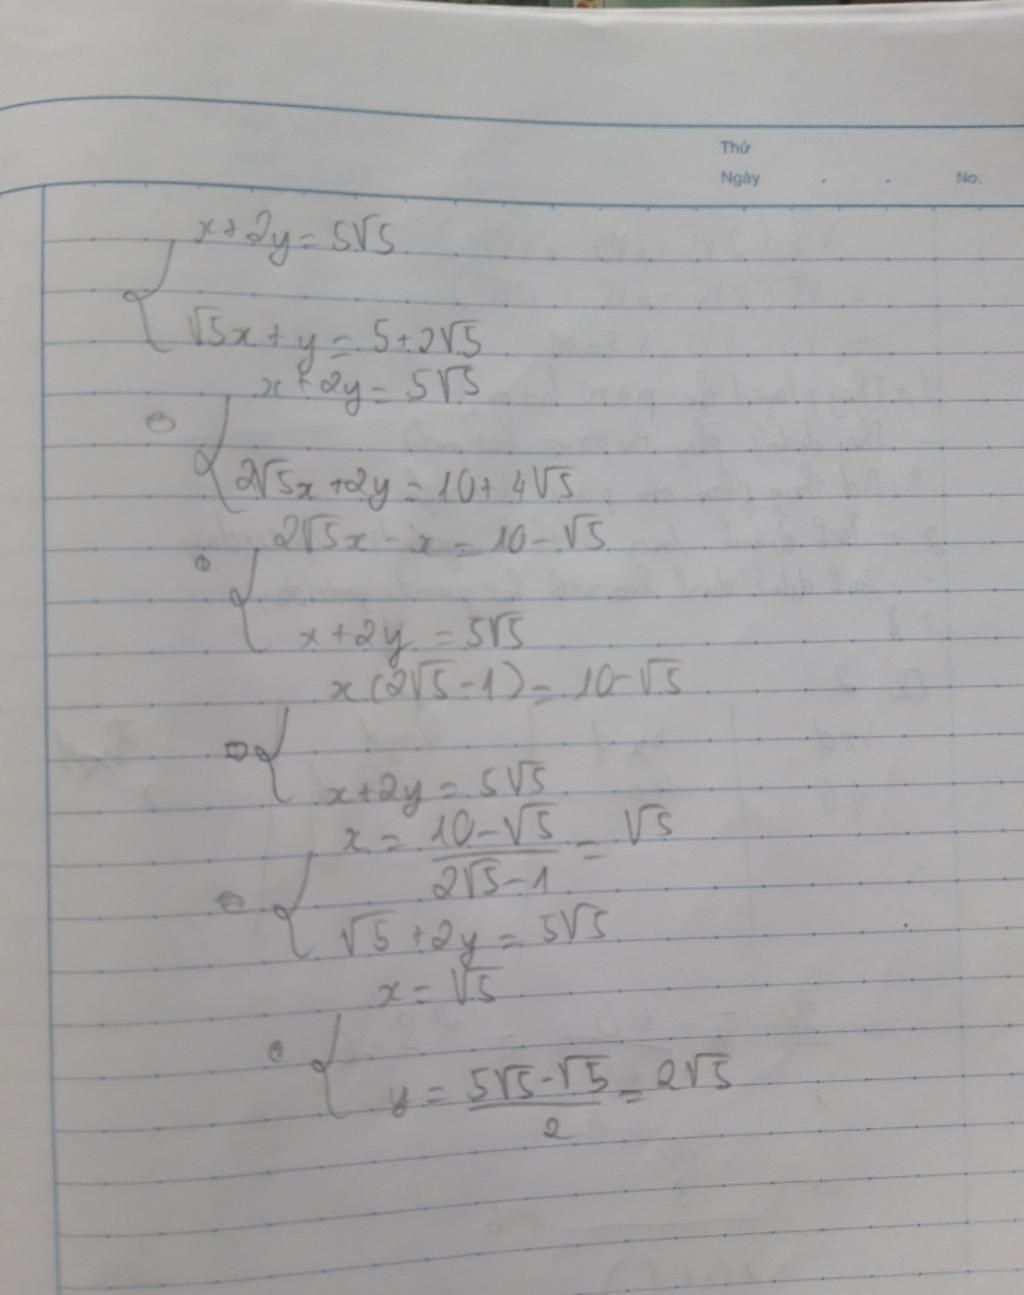 Thứ
Ngày . . No.
x+2y=5√5
√5x+y=5+2√5
x+2y=5√5
2√5x+2y=10+4√5
2√5x-x=10-√5
x+2y=5√5
x(2√5-1)=10-√5
x+2y=5√5
x=(10-√5)/(2√5-1)=√5
√5+2y=5√5
x=√5
y=(5√5-√5)/2=2√5